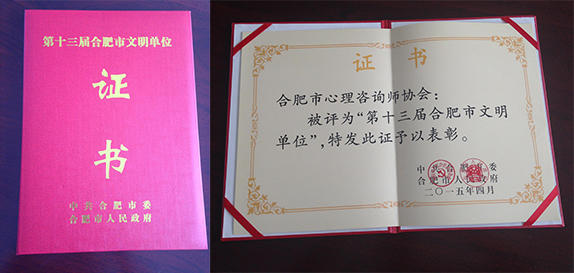 第十三届合肥市文明单位
证
书
中共合肥市委
合肥市人民政府
证书
合肥市心理咨询师协会：
被评为“第十三届合肥市文明
单位”，特发此证予以表彰。
中共合肥市委
合肥市人民政府
二〇一五年四月